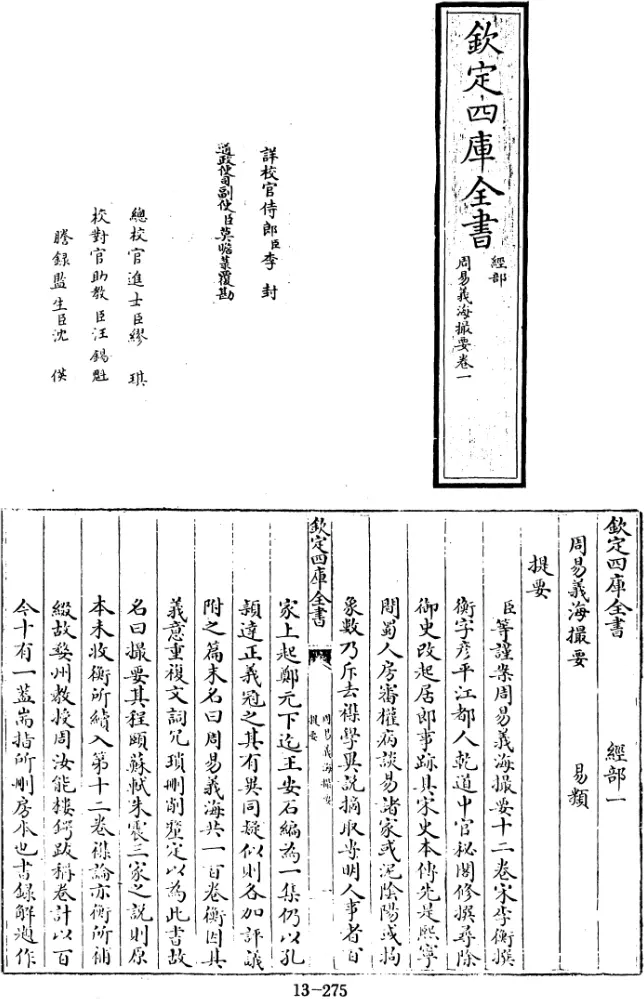 欽定四庫全書
經部
周易義海撮要卷一
詳校官侍郎臣李封
通政使司副使臣莫瞻菉覆勘
總校官進士臣繆琪
校對官助教臣汪錫魁
謄錄監生臣沈俟
欽定四庫全書 經部一
周易義海撮要 易類
提要
臣等謹案周易義海撮要十二卷宋李衡撰
衡字彥平江都人乾道中官秘閣修撰尋除
御史改起居郎事跡具宋史本傳先是熙寧
間蜀人房審權病談易諸家或泥陰陽或拘
象數乃斥去襍學異説摘取專明人事者百
欽定四庫全書
周易義海撮要
提要
家上起鄭元下迄王安石編為一集仍以孔
頴達正義冠之其有異同疑似則各加評議
附之篇末名曰周易義海共一百卷衡因其
義意重複文詞冗瑣刪削釐定以為此書故
名曰撮要其程頤蘇軾朱震三家之説則原
本未收衡所續入第十二卷襍論亦衡所補
綴故婺州教授周汝能樓鍔跋稱卷計以百
今十有一蓋耑指所刪房本也書録解題作
13-275